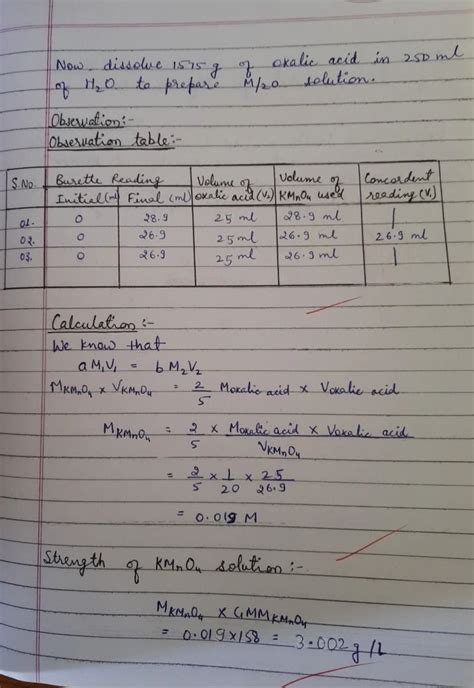 Now dissolve 1575 g of oxalic acid in 250 ml
of H2O to prepare M/20 solution.
Observation:-
Observation table:-
S.No. | Burette Reading | Volume of oxalic acid (V2) | Volume of KMnO4 used | Concordent reading (V1)
Initial (ml) | Final (ml)
01. | 0 | 28.9 | 25 ml | 28.9 ml
02. | 0 | 26.9 | 25 ml | 26.9 ml | 26.9 ml
03. | 0 | 26.9 | 25 ml | 26.9 ml
Calculation:-
We know that
a M1V1 = b M2V2
MKMnO4 x VKMnO4 = 2/5 Moxalic acid x Voxalic acid
MKMnO4 = 2/5 x Moxalic acid x Voxalic acid / VKMnO4
= 2/5 x 1/20 x 25/26.9
= 0.019 M
Strength of KMnO4 solution:-
MKMnO4 x GMMKMnO4
= 0.019x158 = 3.002 g/L